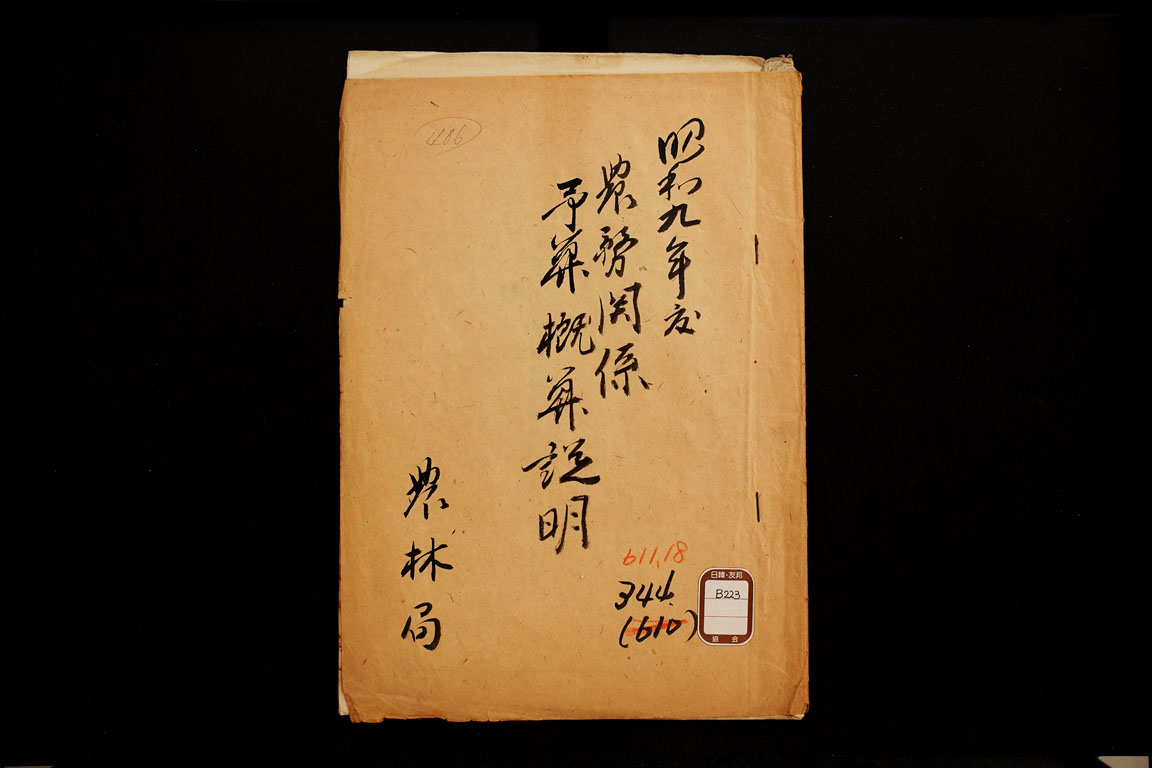 昭和九年度
農務関係
予算概算説明
農林局
406
611.18
344
(610)
日韓・友邦
B223
協会